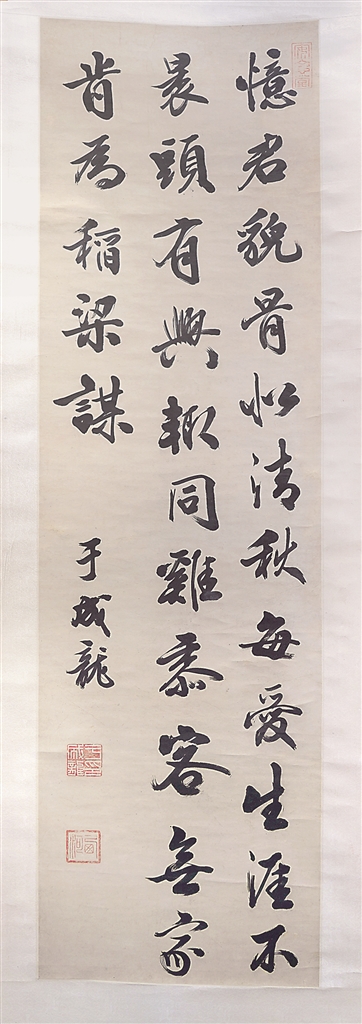 憶君貌骨似清秋每愛生涯不
裹頭有興輙同雞黍客無家
肯為稻梁謀
于成龍